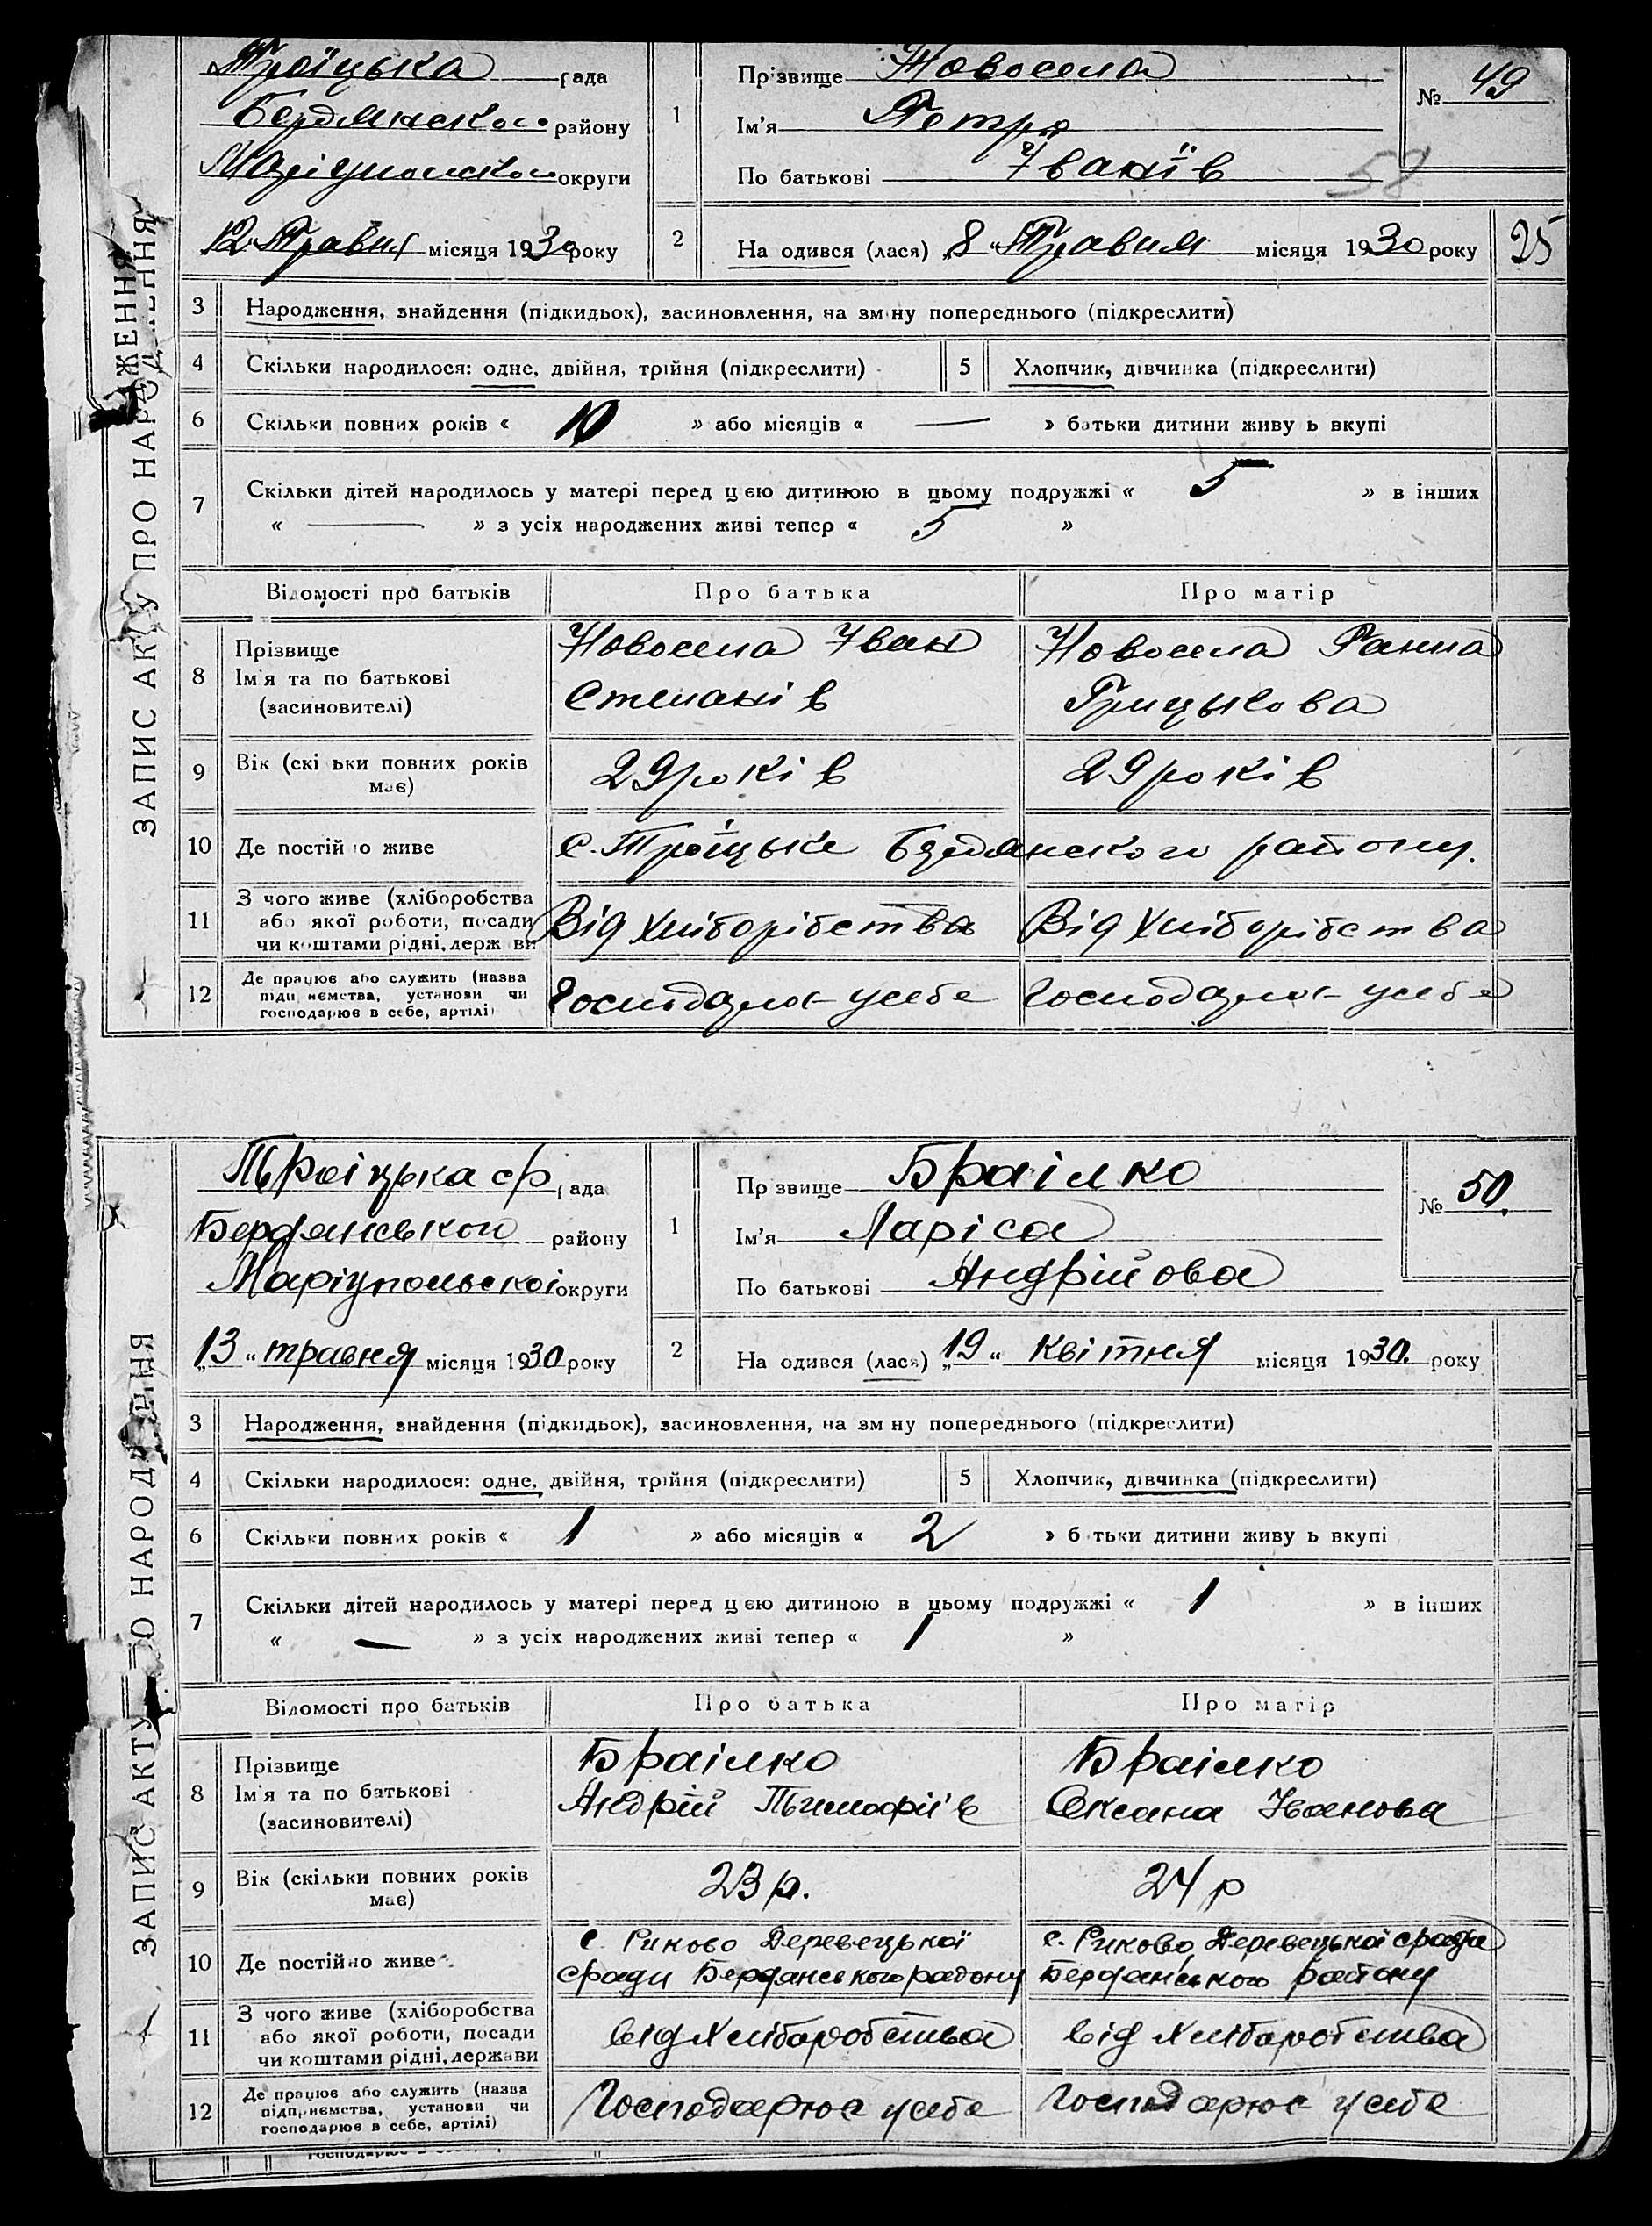 ЗАПИС АКТУ ПРО НАРОДЖЕННЯ
Троїцька рада
Бердянського району
округи
12 Травня місяця 1930 року
1
Прізвище Новосела
Ім'я Петро
По батькові Іванїв
№ 49
58
2
На одився (лася) „8" Травня місяця 1930 року
25
3 Народження, знайдення (підкидьок), засиновлення, на зміну попереднього (підкреслити)
4 Скільки народилося: одне, двійня, трійня (підкреслити)
5 Хлопчик, дівчинка (підкреслити)
6 Скільки повних років « 10 » або місяців « — » батьки дитини живу ь вкупі
7 Скільки дітей народилось у матері перед цією дитиною в цьому подружжі « 5 » в інших
« — » з усіх народжених живі тепер « 5 »
Відомості про батьків Про батька Про матір
8 Прізвище Ім'я та по батькові (засиновителі)
Новосела Іван
Степанів
Новосела Ганна
Грицькова
9 Вік (скі ьки повних років має)
29 років
29 років
10 Де постійно живе
с. Троїцьке Бердянского району.
11 З чого живе (хліборобства або якої роботи, посади чи коштами рідні, держави
Від хліборібства
Від хліборібства
12 Де працює або служить (назва підприємства, установи чи господарює в себе, артілі)
Господарює усебе
Господарює усебе
ЗАПИС АКТУ ПРО НАРОДЖЕННЯ
Тьроіцька ср рада
Бердянського району
Маріупольскоі округи
„13" травня місяця 1930 року
1
Пр звище Браілко
Ім'я Ларіса
По батькові Андрійова
№ 50.
2
На одився (лася) „19" Квітня місяця 1930. року
3 Народження, знайдення (підкидьок), засиновлення, на зм ну попереднього (підкреслити)
4 Скільки народилося: одне, двійня, трійня (підкреслити)
5 Хлопчик, дівчинка (підкреслити)
6 Скільки повних років « 1 » або місяців « 2 » б тьки дитини живу ь вкупі
7 Скільки дітей народилось у матері перед цією дитиною в цьому подружжі « 1 » в інших
« — » з усіх народжених живі тепер « 1 »
Відомості про батьків Про батька Про матір
8 Прізвище Ім'я та по батькові (засиновителі)
Браілко
Андрій Тьимофіїв
Браілко
Оксана Іванова
9 Вік (скільки повних років має)
23 р.
24 р
10 Де постійно живе
с. Риково Деревецької
сради Бердянського району
с. Риково, Деревецької сради
Бердянського району
11 З чого живе (хліборобства або якої роботи, посади чи коштами рідні, держави
від хліборобства
від хліборобства
12 Де працює або служить (назва підприємства, установи чи господарює в себе, артілі)
Господарює усебе
Господарює усебе